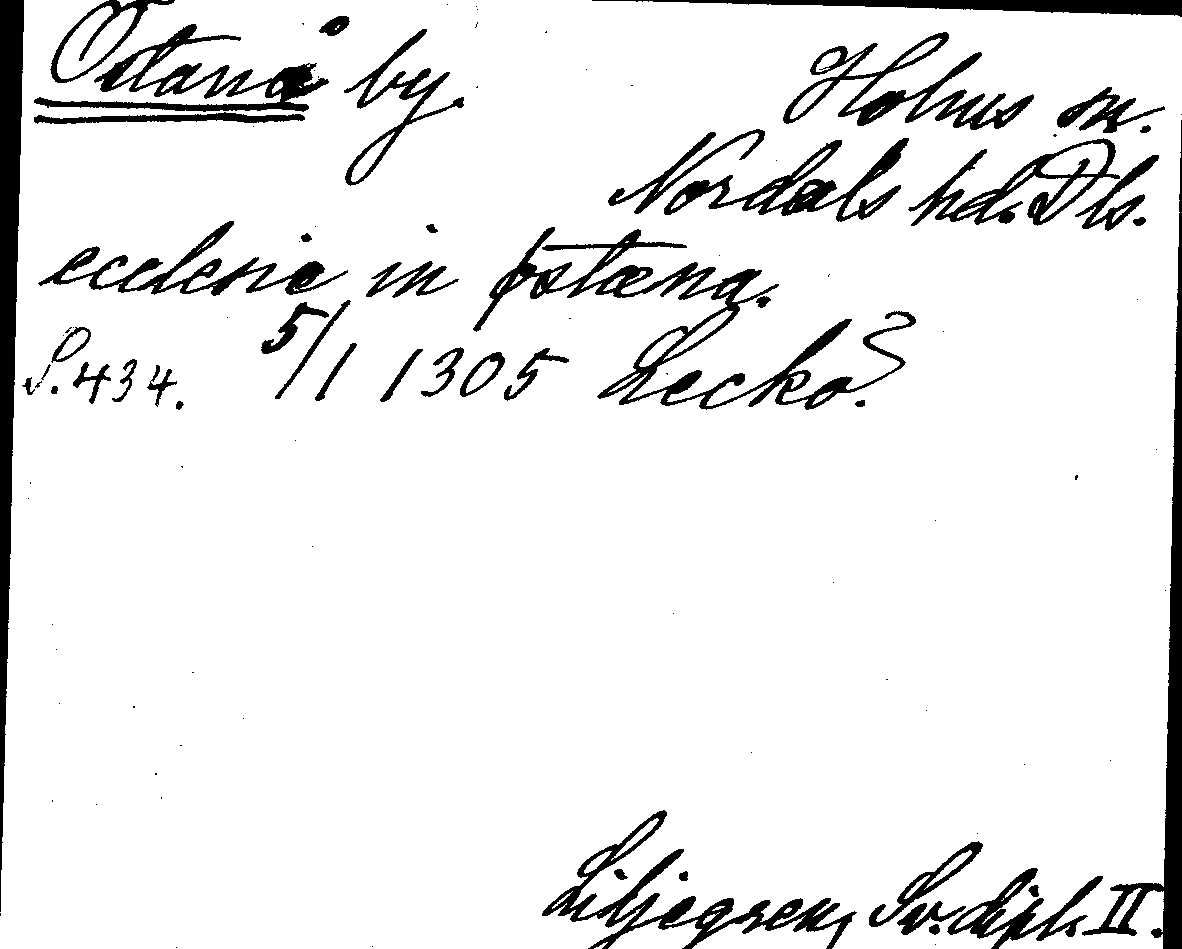 Östanå by.
Holms sn.
Nordals hd. Dls.
ecclesia in østæna.
S. 434. 5/1 1305 Lecko?
Liljegren, Sv. dipl. II.